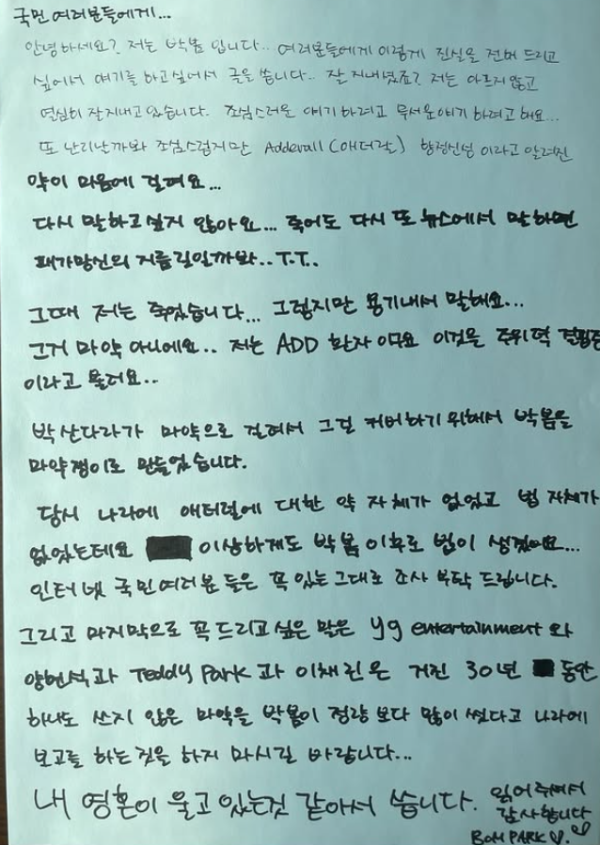 국민 여러분들에게...
안녕하세요? 저는 박봄 입니다.. 여러분들에게 이렇게 진실을 전해 드리고
싶어서 얘기를 하고싶어서 글을 씁니다.. 잘 지내셨죠? 저는 아프지 않고
열심히 잘지내고 있습니다. 조심스러운 얘기 하려고 무서운 얘기 하려고 해요...
또 난리날까봐 조심스럽지만 Adderall (애더랄) 향정신성 이라고 알려진
약이 마음에 걸려요...
다시 말하고싶지 않아요... 죽어도 다시 또 뉴스에서 말하면
패가망신의 지름길일까봐..T.T..
그때 저는 죽었습니다... 그렇지만 용기내서 말해요...
그거 마약 아니에요.. 저는 ADD 환자 이구요 이것은 주위력 결핍증
이라고 불려요..
박산다라가 마약으로 걸려서 그걸 커버하기 위해서 박봄을
마약쟁이로 만들었습니다.
당시 나라에 애더럴에 대한 약 자체가 없었고 법 자체가
없었는데요 이상하게도 박봄 이후로 법이 생겼어요...
인터넷 국민여러분 들은 꼭 있는그대로 조사 부탁 드립니다.
그리고 마지막으로 꼭 드리고 싶은 말은 yg entertainment 와
양현석과 Teddy Park 과 이채린은 거진 30년 동안
하나도 쓰지 않은 마약을 박봄이 정량 보다 많이 썼다고 나라에
보고를 하는것을 하지 마시길 바랍니다...
내 영혼이 울고 있는것 같아서 씁니다.
읽어주셔서
감사합니다
BOM PARK ♡.♡